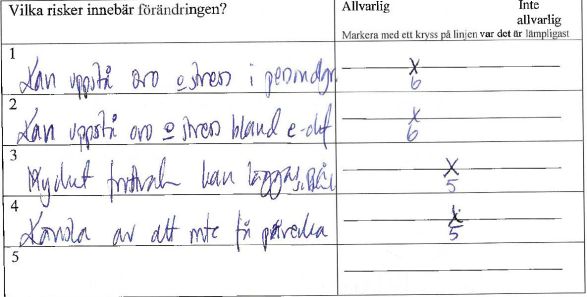 Vilka risker innebär förändringen?
Allvarlig
Inte allvarlig
Markera med ett kryss på linjen var det är lämpligast
1
Kan uppstå oro o stress i
x
6
2
Kan uppstå oro o stress bland
x
6
3
Mycket kan läggas
x
5
4
Känsla av att inte få påverka
x
5
5